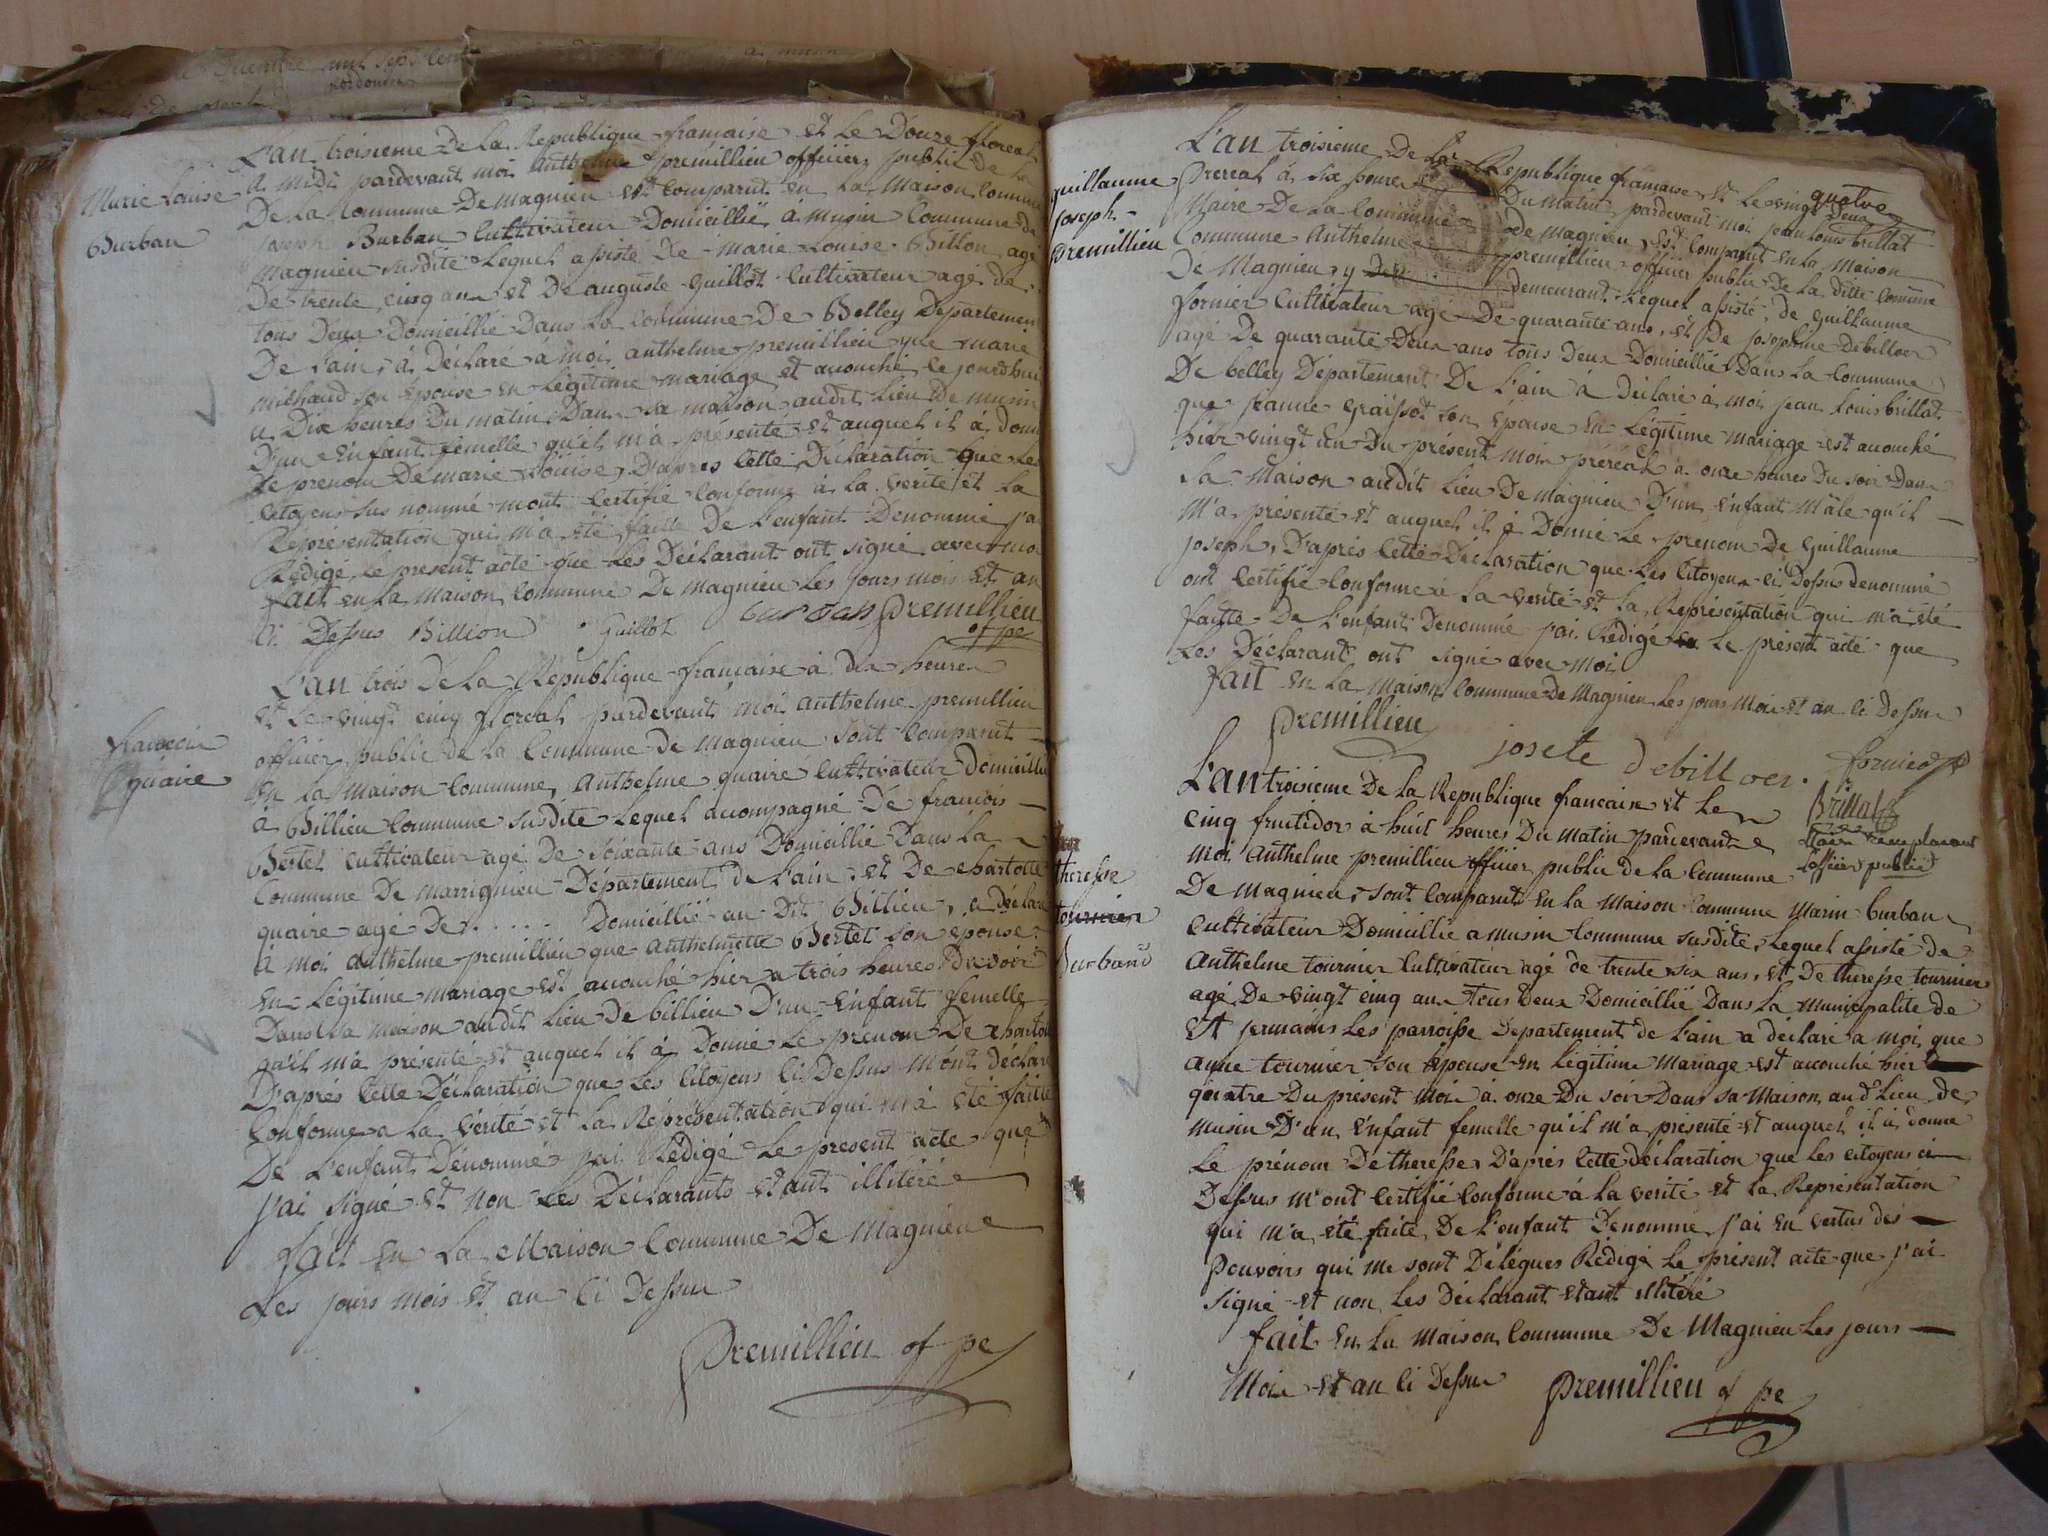 Marie Louise
Burban
L'an troisieme De la Republique française et le Douze floreal
a midi pardevant moi Anthelme premillieu officier public de la
De la Commune De magnieu est Comparut en la Maison Comune
joseph Burban Cultivateur Domicillié à musin Commune de
magnieu susdite Lequel assisté De marie Louise Billon agé
De trente cinq ans et De auguste Guillot Cultivateur agé de
tous Deux Domicillié Dans la Commune De Belley Departemen
De L'ain, à Déclaré à moi anthelme premillieu que marie
michaud son Epouse en Légitime mariage et acouché le jourd'hui
a Dix heures Du matin Dans sa maison audit Lieu De musin
D'un Enfant femelle qu'il m'a présenté et auquel il à donn
Le prenom De marie Louise, D'apres Cette Déclaration que Les
Citoyens sus nommé m'ont Certifié Conforme à la vérité et La
Représentation qui m'a été faite De L'enfant Denommé j'ai
Rédigé Le present acte que Les Déclarant ont signé avec moi
fait en La maison Commune De magnieu Les jours mois et an
Ci Dessus Billion Guillot burban Premillieu
of pe
francois
Quaire
L'an trois De La République française à dix heures
et Le vingt cinq floreal pardevant moi anthelme premillieu
officier public de La Commune de magnieu sont Comparut
En La maison Commune, Anthelme quaire Cultivateur Domicillié
a Billieu Commune susdite Lequel acompagné De francois
Bertet Cultivateur agé De soixante ans Domicillié Dans La
Commune De marrignieu Département de L'ain et De charlotte
quaire agé De ..... Domicillié au Dit Billieu, a déclaré
à moi anthelme premillieu que Anthelmette Bertet son epouse
En Légitime mariage est acouché hier a trois heures Du soir
Dans sa maison audit Lieu De billieu D'un Enfant femelle
qu'il m'a présenté et auquel il à Donné Le prenom De charlott
D'après Cette Déclaration que Les Citoyens Ci Dessus m'ont déclaré
Conforme a La vérité et La Réprésentation qui m'a été faitte
De L'enfant Dénommé j'ai Rédigé Le present acte que
j'ai signé et non Les Déclarants etant illitéré
fait en La Maison Commune De Magnieu
Les jours mois et an Ci Dessus
Premillieu of pe
guillaume
joseph
premillieu
L'an troisieme De La République française et Le vingt quatre
Deux
prereal à six heures Du matin pardevant moi jean Louis brillat
Maire De La Commune De magnieu, est Comparut en La maison
Commune Anthelme premillieu officier public De La ditte Comune
De Magnieu, y demeurant Lequel assisté, de Guillaume
fornier Cultivateur agé De quarante ans, et De Josephine Debilloer
agé De quarante Deux ans tous Deux Domicillié Dans La Commune
De belley Département De L'ain à Déclaré à moi jean Louis brillat
que jeanne graissot son Epouse en Légitime mariage est acouché
hier vingt un Du présent mois préréal à onze heures Du soir Dans
sa Maison audit Lieu De magnieu D'un Enfant Mâle qu'il
M'a présenté et auquel il à Donné Le prenom De Guillaume
joseph, D'après Cette Déclaration que Les Citoyens ci Dessus denommé
ont Certifié Conforme à La verité et La Représentation qui m'a été
faitte De L'enfant Denommé j'ai Rédigé Le présent acte que
Les Déclarant ont signé avec moi
fait en La Maison Commune De Magnieu Les jours Mois et an Ci Dessus
Premillieu josete debilloer. fornier
Brillat
Maire remplacant
L'officier public
therese
tournier
Burband
L'an troisieme De La Republique francaise et Le
cinq fruitidor à huit heures Du matin pardevant
moi Anthelme premillieu officier public de La Commune
De Magnieu, sont Comparut en La Maison Commune Marin burban
Cultivateur Domicillié a musin Commune susdite, Lequel assisté de
Anthelme tournier Cultivateur agé de trente six ans, et De therese tournier
agé De vingt cinq ans Tous Deux Domicillié Dans La Municipalité De
St jermains Les parroisse Departement de L'ain a declaré a moi que
anne tournier son Epouse en Légitime Mariage est acouché hier
quatre Du présent Mois à onze Du soir Dans sa Maison aud Lieu de
musin D'un Enfant femelle qu'il m'a présenté et auquel il à donné
Le prénom De therese, D'après Cette déclaration que Les citoyens ci
Dessus m'ont Certifié Conforme à La verité et La Représentation
qui m'a été faite De L'enfant Denommé, j'ai en vertus des
Pouvoirs qui me sont Délégues Rédigé Le présent acte que j'ai
signé et non Les Déclarant etant illitéré
fait en La Maison Commune De Magnieu Les jours
Mois et an Ci Dessus Premillieu of pe